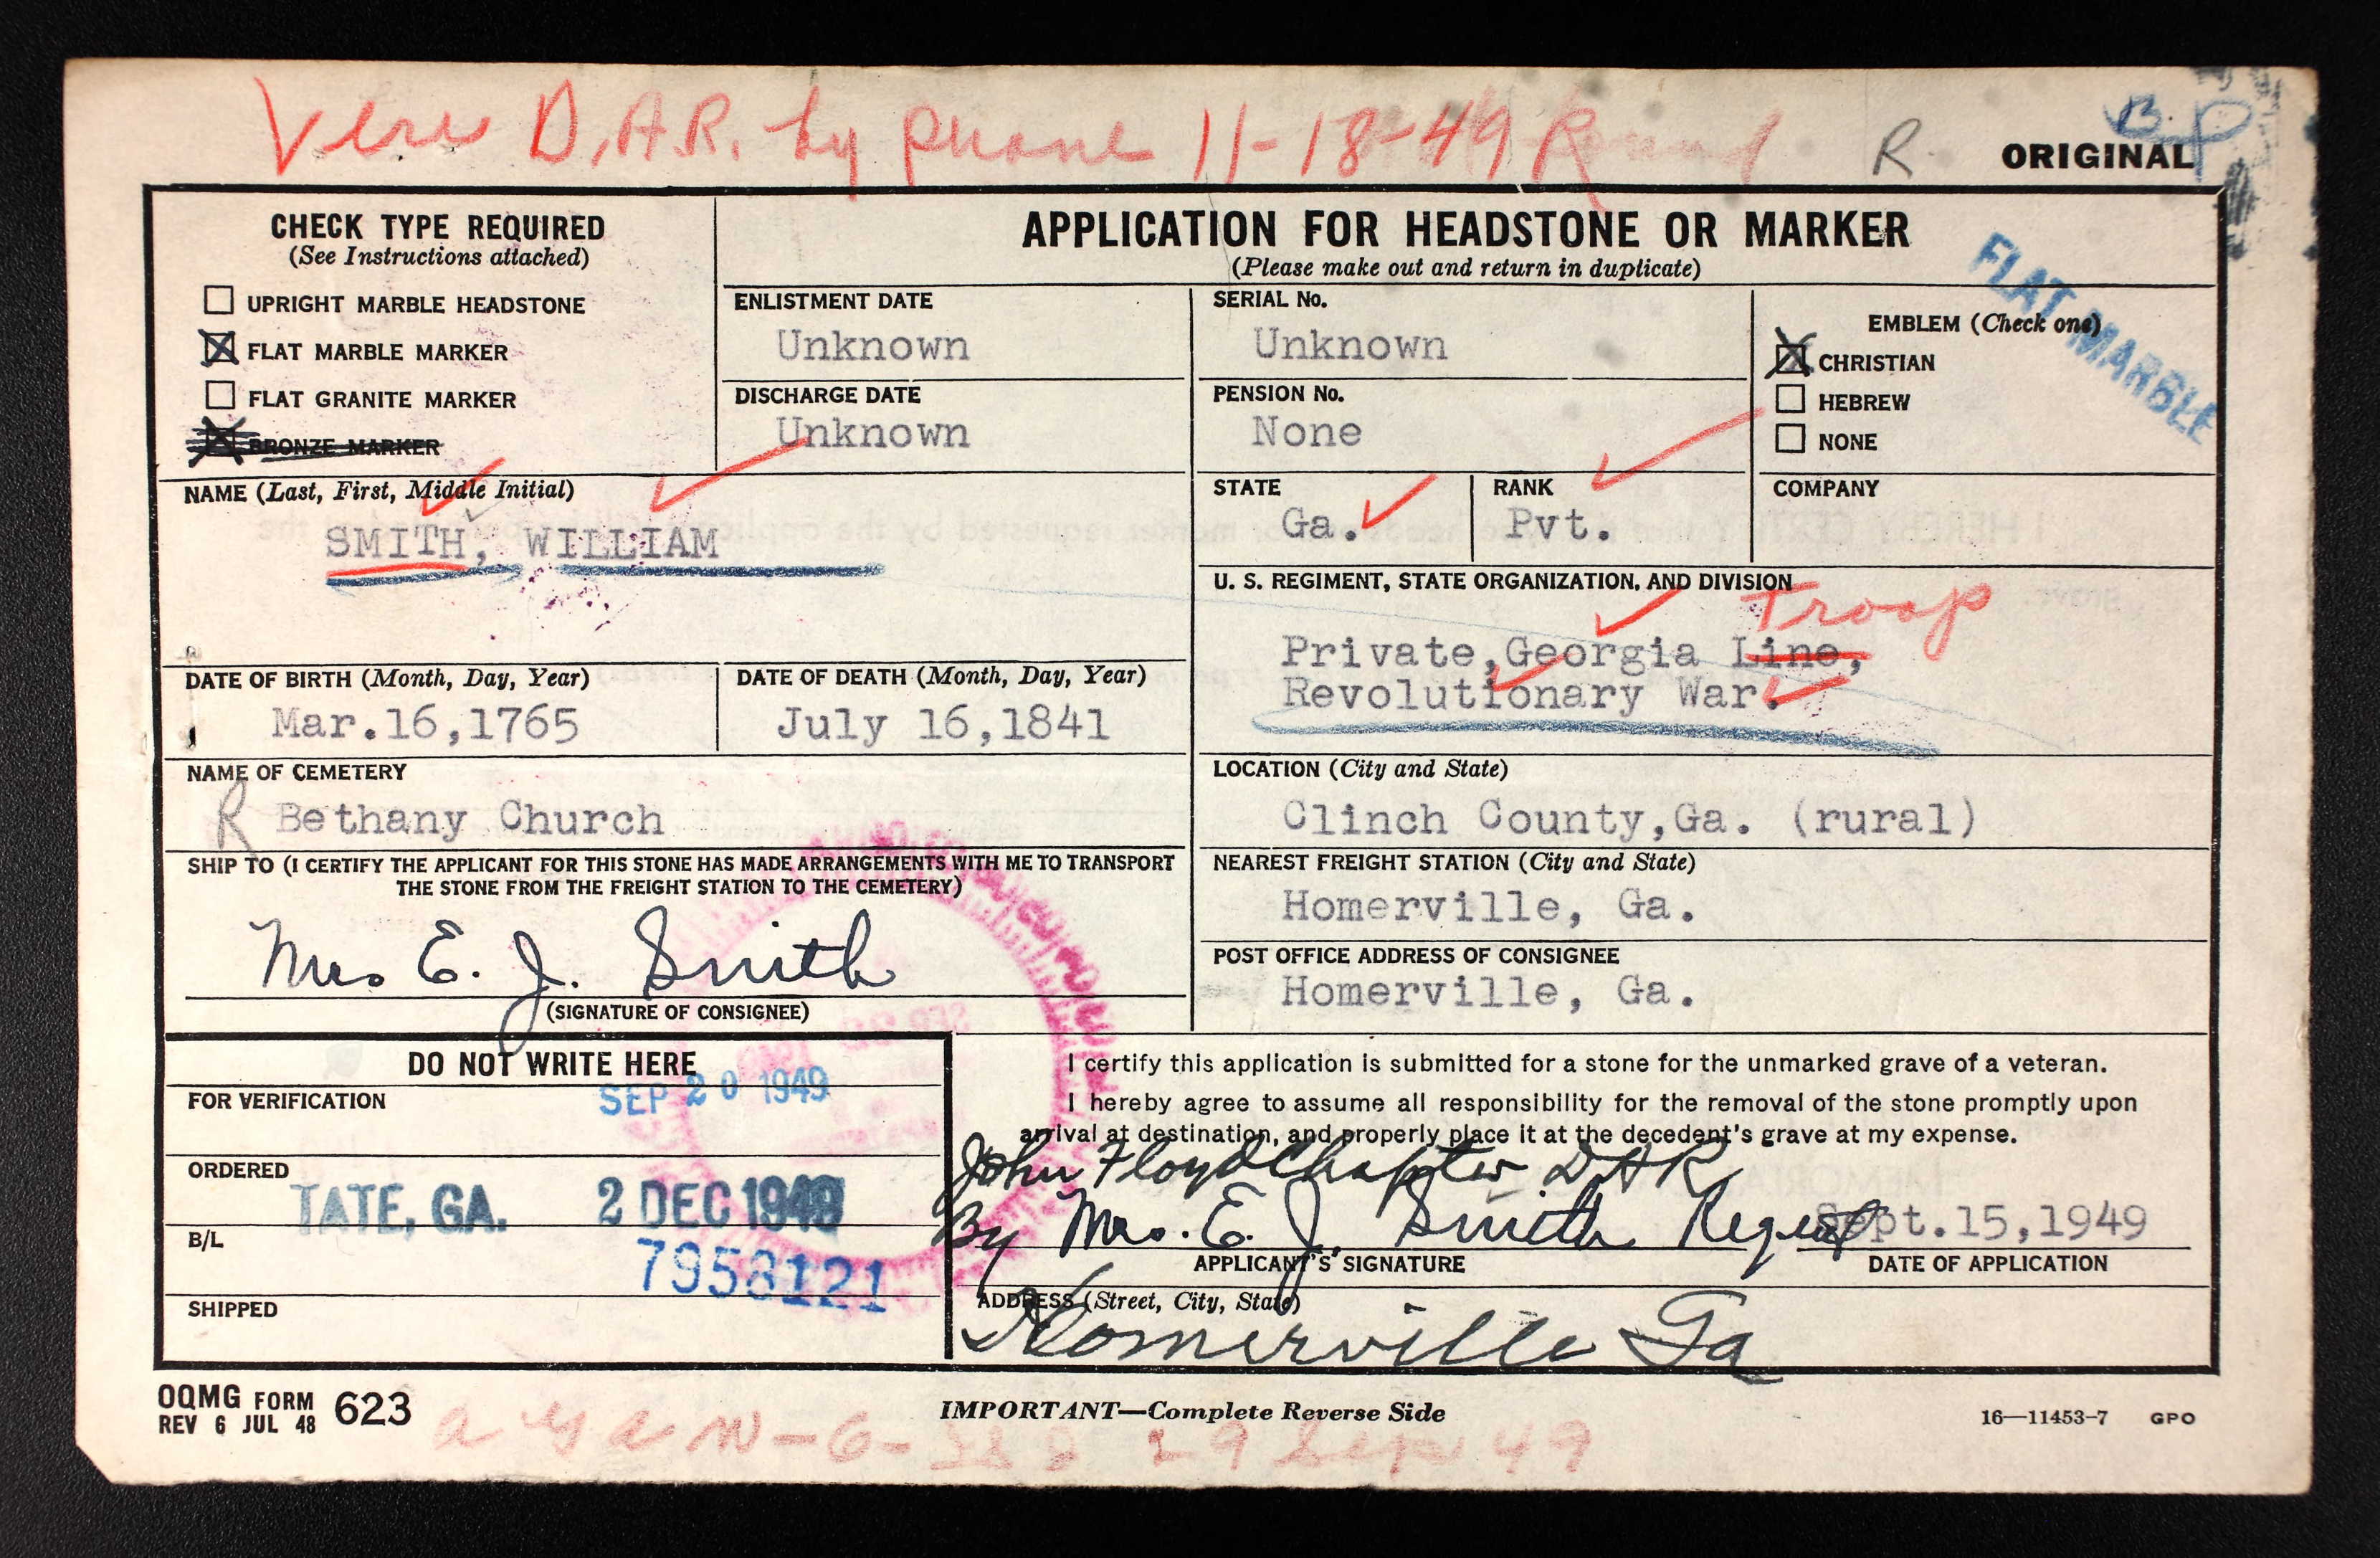 Veri D.A.R. by phone 11-18-49 R
R
B.P
ORIGINAL
CHECK TYPE REQUIRED
(See Instructions attached)
UPRIGHT MARBLE HEADSTONE
FLAT MARBLE MARKER
FLAT GRANITE MARKER
BRONZE MARKER
APPLICATION FOR HEADSTONE OR MARKER
(Please make out and return in duplicate)
ENLISTMENT DATE
Unknown
DISCHARGE DATE
Unknown
SERIAL No.
Unknown
PENSION No.
None
EMBLEM (Check one)
CHRISTIAN
HEBREW
NONE
FLAT MARBLE
NAME (Last, First, Middle Initial)
SMITH, WILLIAM
STATE
Ga.
RANK
Pvt.
COMPANY
U. S. REGIMENT, STATE ORGANIZATION, AND DIVISION
Troop
Private, Georgia Line,
Revolutionary War.
DATE OF BIRTH (Month, Day, Year)
Mar.16,1765
DATE OF DEATH (Month, Day, Year)
July 16,1841
NAME OF CEMETERY
R Bethany Church
LOCATION (City and State)
Clinch County,Ga. (rural)
SHIP TO (I CERTIFY THE APPLICANT FOR THIS STONE HAS MADE ARRANGEMENTS WITH ME TO TRANSPORT
THE STONE FROM THE FREIGHT STATION TO THE CEMETERY)
Mrs E. J. Smith
(SIGNATURE OF CONSIGNEE)
NEAREST FREIGHT STATION (City and State)
Homerville, Ga.
POST OFFICE ADDRESS OF CONSIGNEE
Homerville, Ga.
DO NOT WRITE HERE
FOR VERIFICATION
SEP 20 1949
ORDERED
TATE, GA. 2 DEC 1949
B/L
7958121
SHIPPED
I certify this application is submitted for a stone for the unmarked grave of a veteran.
I hereby agree to assume all responsibility for the removal of the stone promptly upon
arrival at destination, and properly place it at the decedent's grave at my expense.
John Floyd Chapter DAR
By Mrs. E. J. Smith Regent
Sept.15,1949
APPLICANT'S SIGNATURE
DATE OF APPLICATION
ADDRESS (Street, City, State)
Homerville Ga
OQMG FORM 623
REV 6 JUL 48
IMPORTANT—Complete Reverse Side
16—11453-7 GPO
29 Sep 49